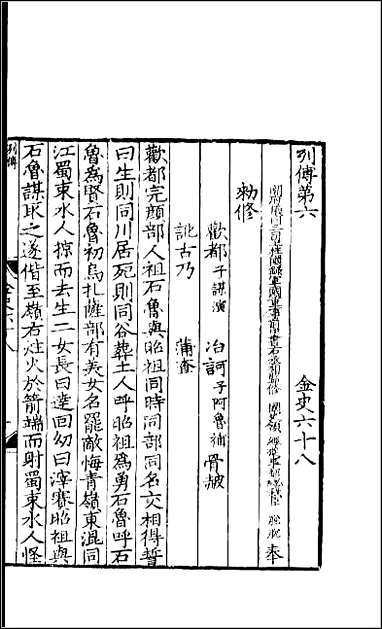 列傳第六　　金史六十八
開府儀同三司上柱國錄軍國重事前中書右丞相監修國史領經筵事都總裁臣脫脫奉
勑修
歡都子謀演　冶訶子阿魯補　骨赧
訛古乃　蒲查
歡都完顔部人祖石魯與昭祖同時同部同名交相得誓
曰生則同川居死則同谷葬土人呼昭祖爲勇石魯呼石
魯爲賢石魯初烏扎薩部有美女名罷敵悔青嶺東混同
江蜀束水人掠而去生二女長曰達回幼曰滓賽昭祖與
石魯謀取之遂偕至嶺右炷火於箭端而射蜀束水人怪
列傳
金史六十八
一